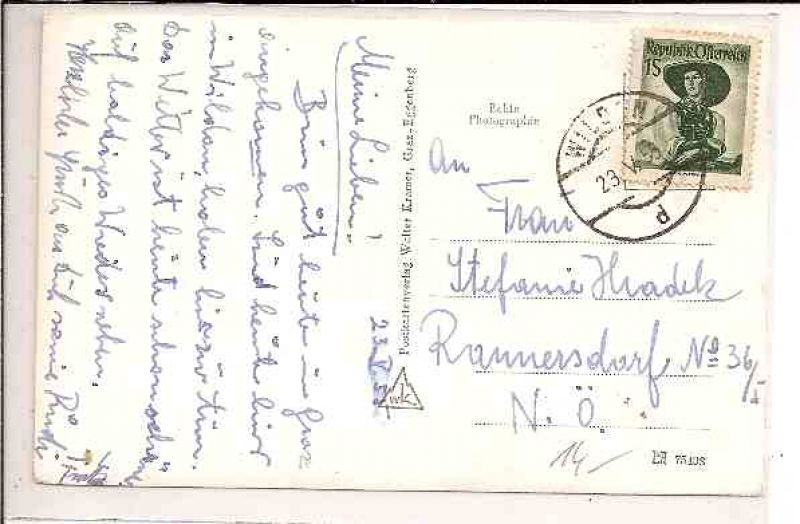 Meine Lieben!
Bin gut heute in Graz
eingekommen. Sind heute hier
in Wildon, haben hier zu tun.
Das Wetter ist heute schon schön
auf baldiges Wiedersehen.
Herzliche Grüße an Euch
23.
Postkartenverlag Walter Kramer, Graz-Eggenberg
WK
Echte
Photographie
Republik Österreich
1S
WILDON
23
d
An
Frau
Stefanie Hradek
Rannersdorf No 36/I
N.Ö.
14,-